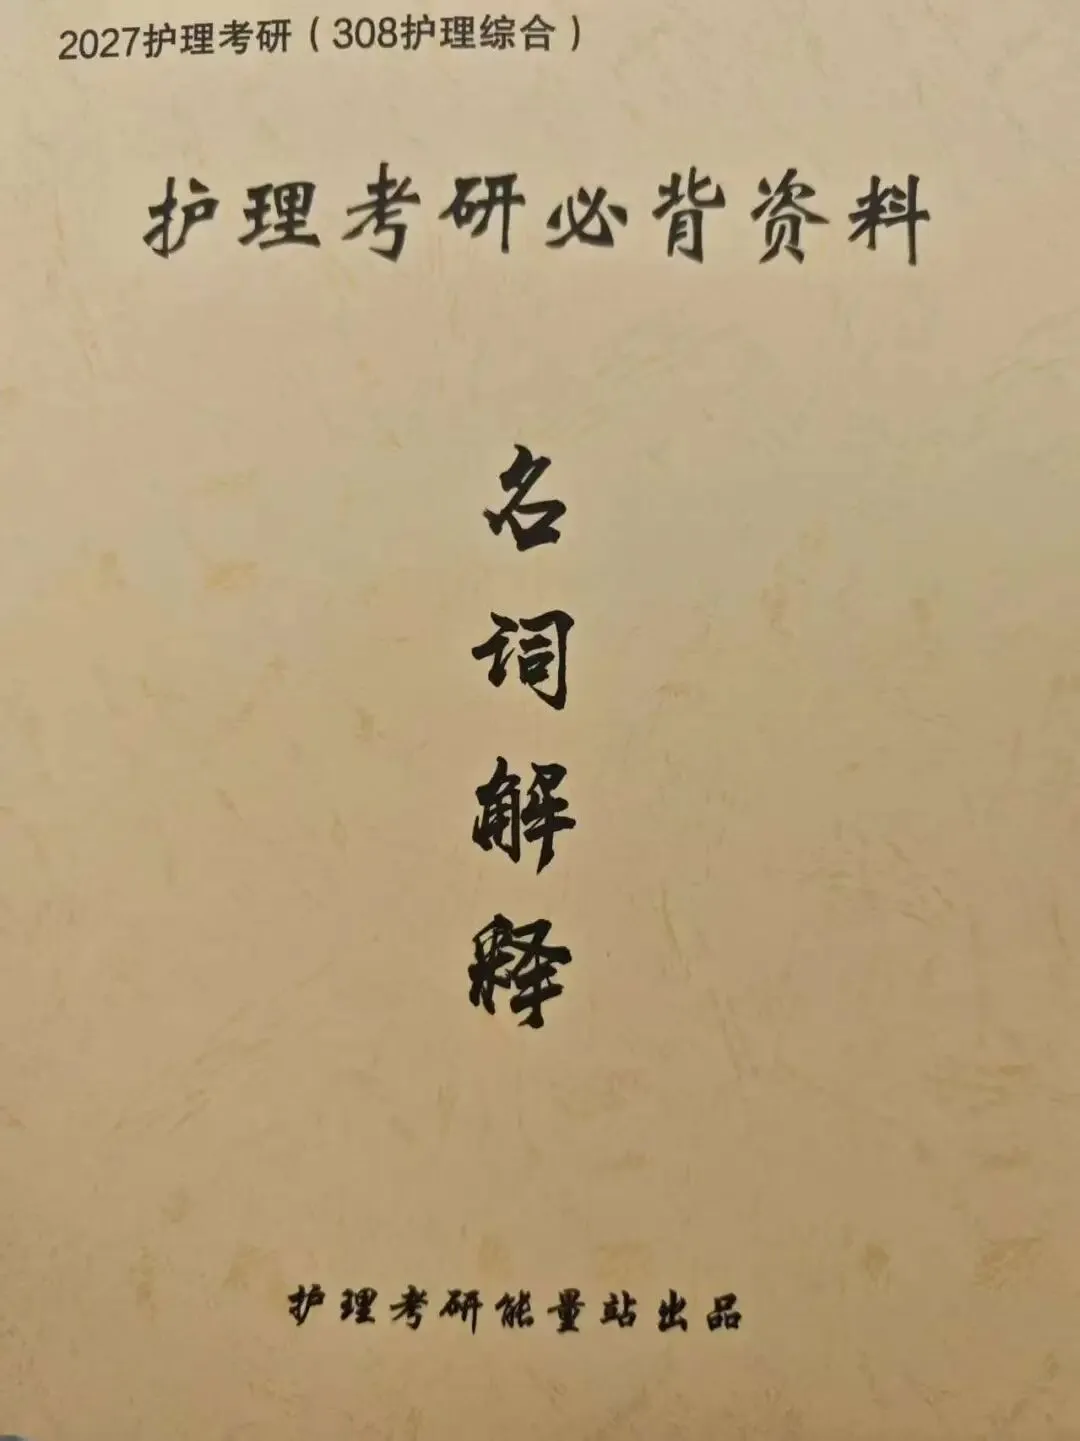 2027护理考研（308护理综合）
护理考研必背资料
名词解释
护理考研能量站出品